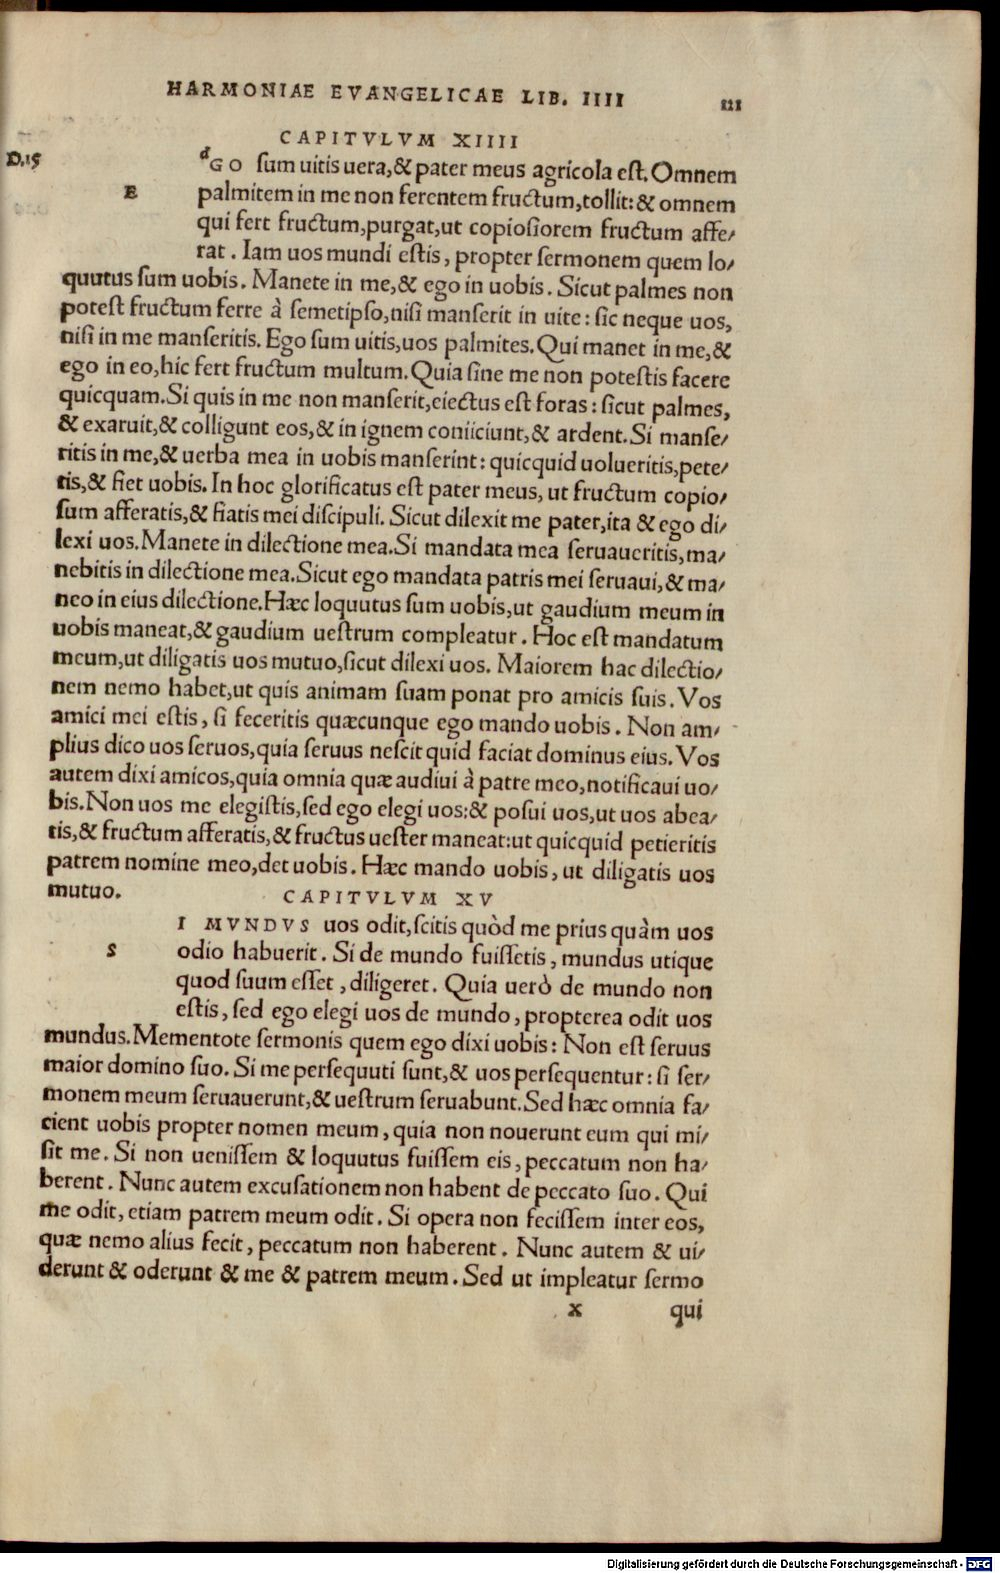 HARMONIAE EVANGELICAE LIB. IIII
CAPITVLVM XIIII
D.15 ᵈGO sum uitis uera,& pater meus agricola est. Omnem
E palmitem in me non ferentem fructum,tollit: & omnem
qui fert fructum,purgat,ut copiosiorem fructum affe/
rat. Iam uos mundi estis, propter sermonem quem lo/
quutus sum uobis. Manete in me,& ego in uobis. Sicut palmes non
potest fructum ferre à semetipso,nisi manserit in uite: sic neque uos,
nisi in me manseritis. Ego sum uitis,uos palmites. Qui manet in me,&
ego in eo,hic fert fructum multum. Quia sine me non potestis facere
quicquam. Si quis in me non manserit,eiectus est foras: sicut palmes,
& exaruit,& colligunt eos,& in ignem coniiciunt,& ardent. Si manse/
ritis in me,& uerba mea in uobis manserint: quicquid uolueritis,pete/
tis,& fiet uobis. In hoc glorificatus est pater meus, ut fructum copio/
sum afferatis,& fiatis mei discipuli. Sicut dilexit me pater,ita & ego di/
lexi uos. Manete in dilectione mea. Si mandata mea seruaueritis,ma/
nebitis in dilectione mea. Sicut ego mandata patris mei seruaui,& ma/
neo in eius dilectione. Hæc loquutus sum uobis,ut gaudium meum in
uobis maneat,& gaudium uestrum compleatur. Hoc est mandatum
meum,ut diligatis uos mutuo,sicut dilexi uos. Maiorem hac dilectio/
nem nemo habet,ut quis animam suam ponat pro amicis suis. Vos
amici mei estis, si feceritis quæcunque ego mando uobis. Non am/
plius dico uos seruos,quia seruus nescit quid faciat dominus eius. Vos
autem dixi amicos,quia omnia quæ audiui à patre meo,notificaui uo/
bis. Non uos me elegistis,sed ego elegi uos:& posui uos,ut uos abea/
tis,& fructum afferatis,& fructus uester maneat:ut quicquid petieritis
patrem nomine meo,det uobis. Hæc mando uobis, ut diligatis uos
mutuo. CAPITVLVM XV
I MVNDVS uos odit,scitis quòd me prius quàm uos
S odio habuerit. Si de mundo fuissetis, mundus utique
quod suum esset, diligeret. Quia uerò de mundo non
estis, sed ego elegi uos de mundo, propterea odit uos
mundus. Mementote sermonis quem ego dixi uobis: Non est seruus
maior domino suo. Si me persequuti sunt,& uos persequentur: si ser/
monem meum seruauerunt,& uestrum seruabunt. Sed hæc omnia fa/
cient uobis propter nomen meum, quia non nouerunt eum qui mi/
sit me. Si non uenissem & loquutus fuissem eis, peccatum non ha/
berent. Nunc autem excusationem non habent de peccato suo. Qui
me odit, etiam patrem meum odit. Si opera non fecissem inter eos,
quæ nemo alius fecit, peccatum non haberent. Nunc autem & ui/
derunt & oderunt & me & patrem meum. Sed ut impleatur sermo
x qui
Digitalisierung gefördert durch die Deutsche Forschungsgemeinschaft - DFG